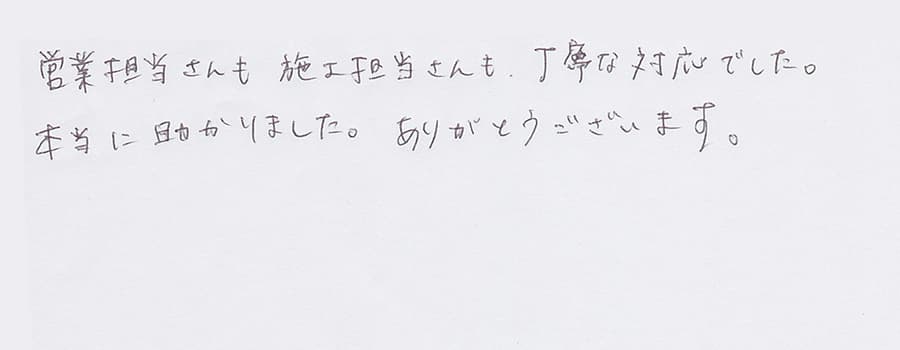 営業担当さんも 施工担当さんも、丁寧な対応でした。
本当に助かりました。 ありがとうございます。